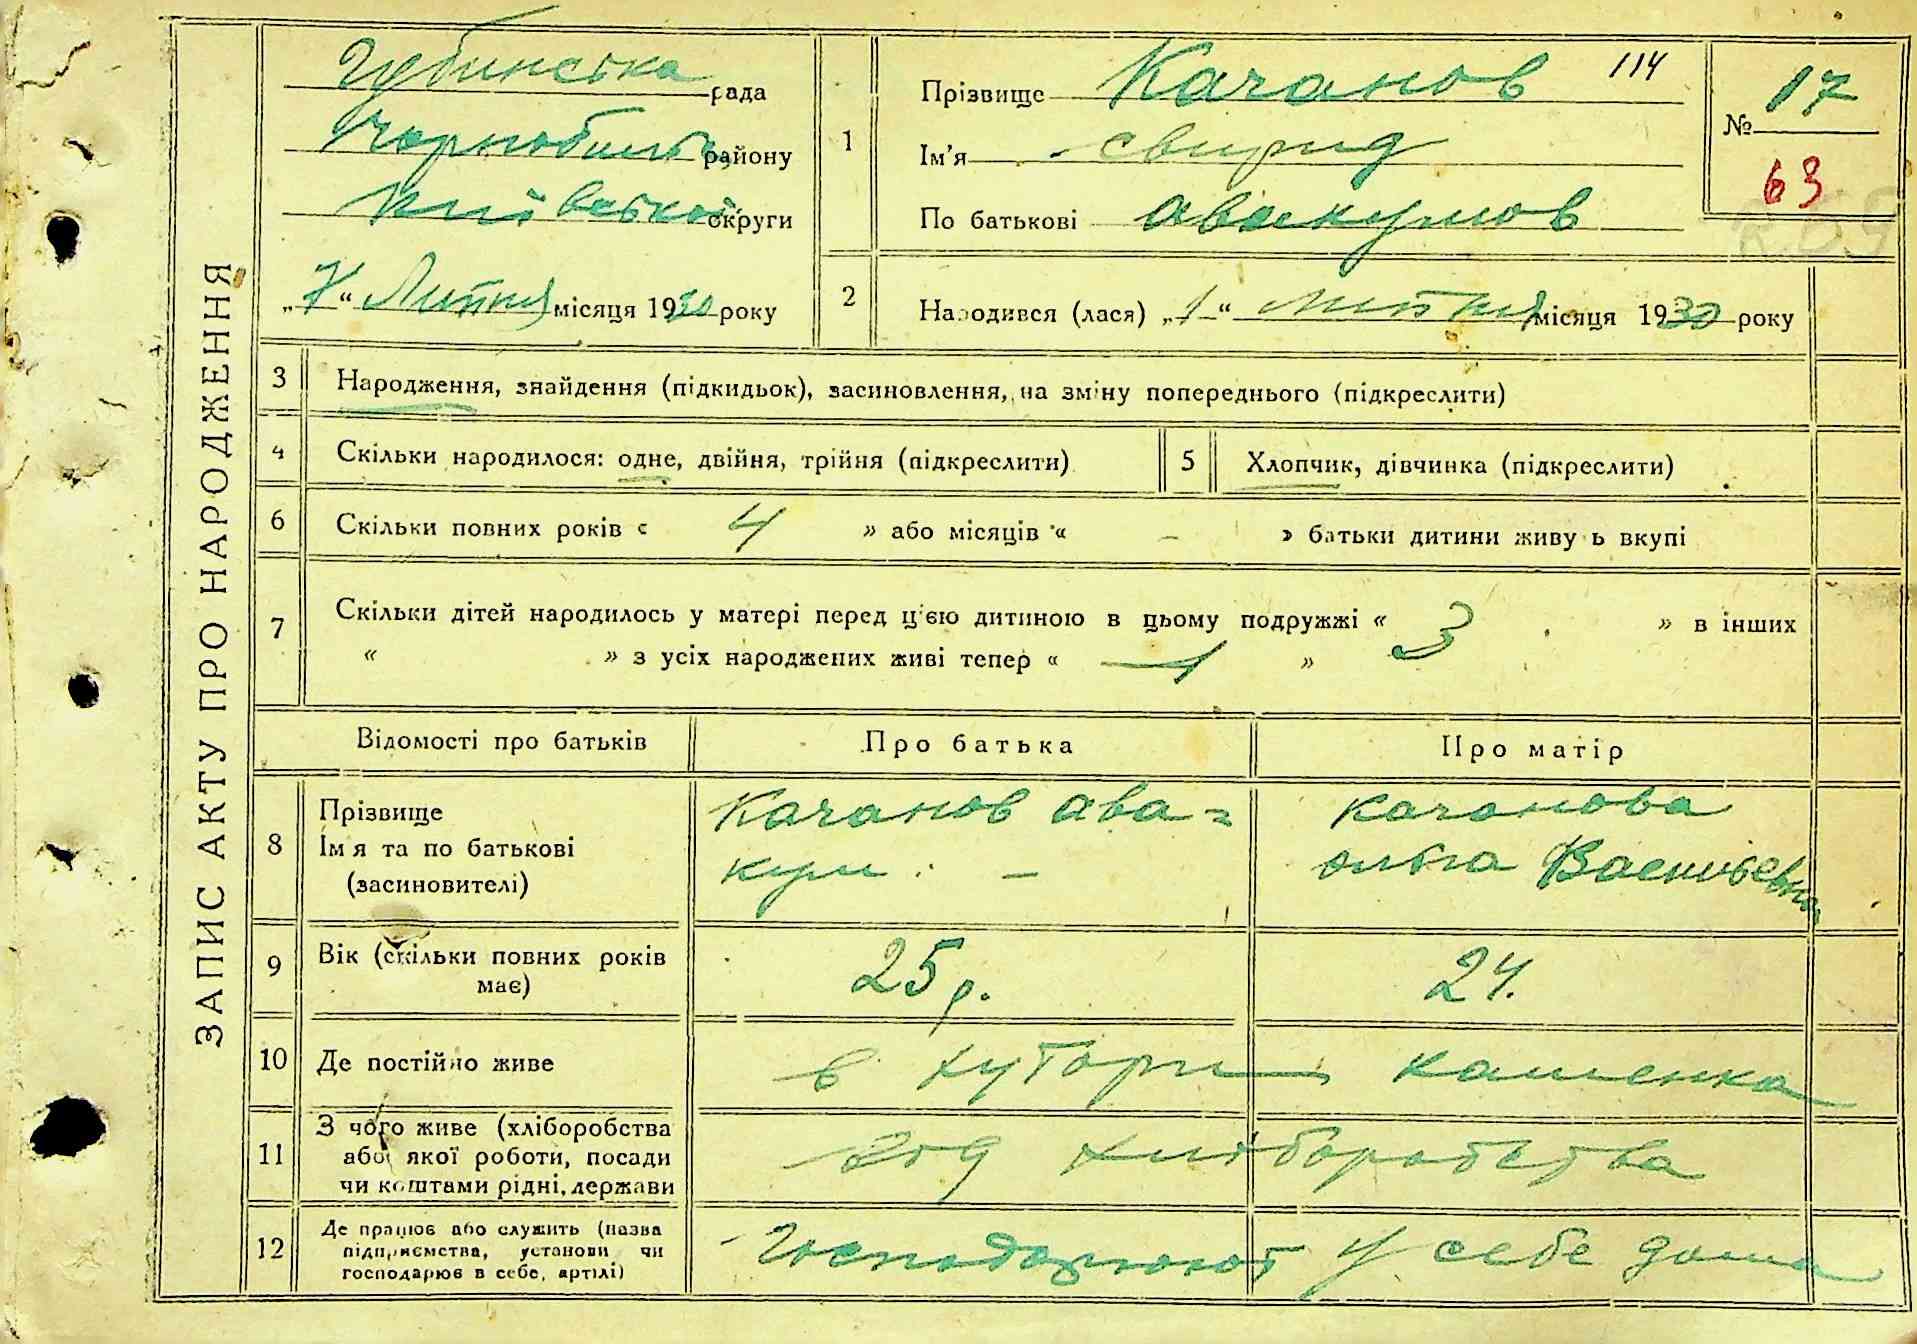 ЗАПИС АКТУ ПРО НАРОДЖЕННЯ
Губинська рада
Чорнобильс району
Київської округи
„7“ Липня місяця 1930 року
1
Прізвище Качанов
114
Ім'я Свирид
По батькові авакумов
№ 17
63
209
2
Народився (лася) „1“ липня місяця 1930 року
3 Народження, знайдення (підкидьок), засиновлення, на зміну попереднього (підкреслити)
4 Скільки народилося: одне, двійня, трійня (підкреслити)
5 Хлопчик, дівчинка (підкреслити)
6 Скільки повних років « 4 » або місяців « - » батьки дитини живуть вкупі
7 Скільки дітей народилось у матері перед ц'єю дитиною в цьому подружжі « 3 » в інших
« » з усіх народжених живі тепер « 1 »
Відомості про батьків Про батька Про матір
8
Прізвище
Ім'я та по батькові
(засиновителі)
Качанов ава=
кум. —
Качанова
ольга Васильевна
9 Вік (скільки повних років
має)
25 р.
24.
10 Де постійно живе в хутори каменка
11 З чого живе (хліборобства
або якої роботи, посади
чи коштами рідні, держави
від хліборобства
12 Де працює або служить (назва
підприємства, установи чи
господарює в себе, артілі)
Господарюют у себе дома